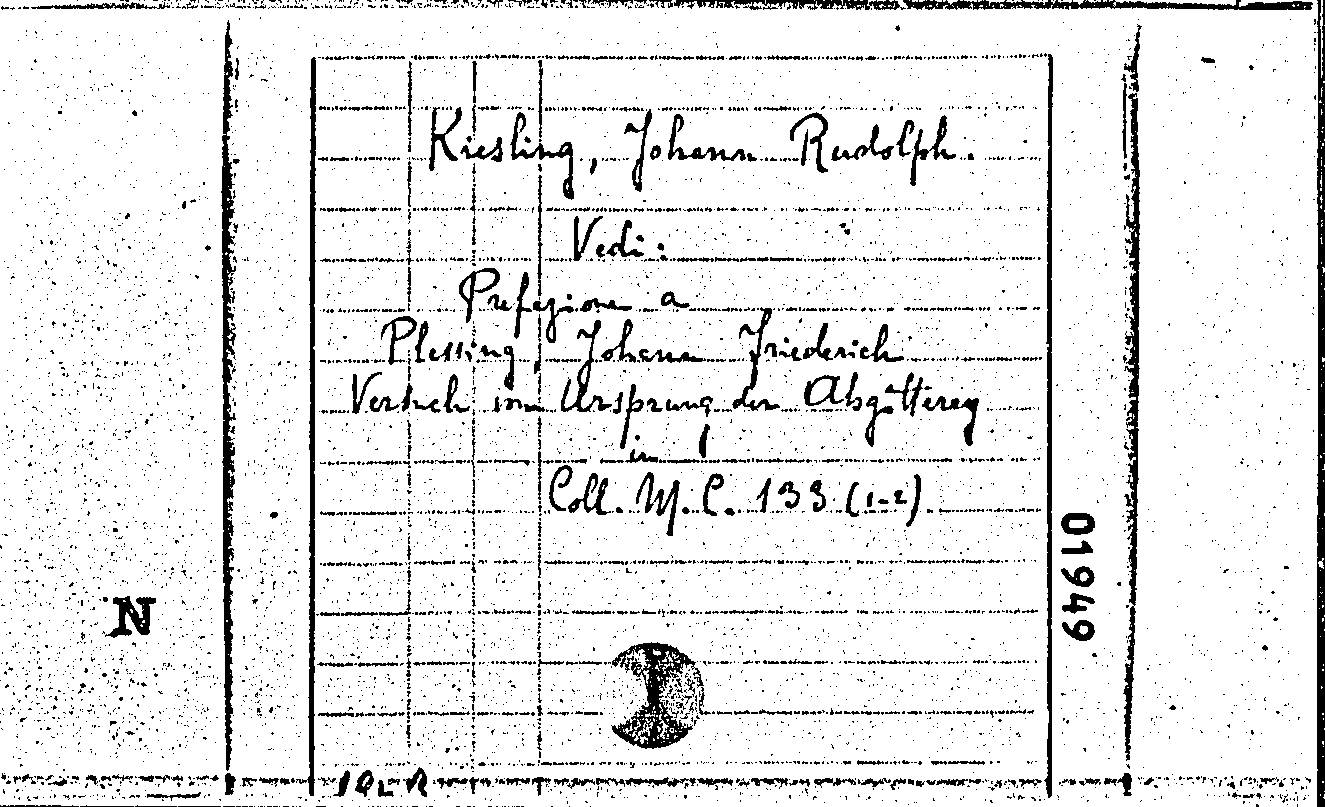 Kiesling, Johann Rudolph.
Vedi:
Prefazione a
Plessing, Johann Friederich
Versuch vom Ursprung der Abgötterey
in
Coll. M. C. 133 (1-2).
01949
N